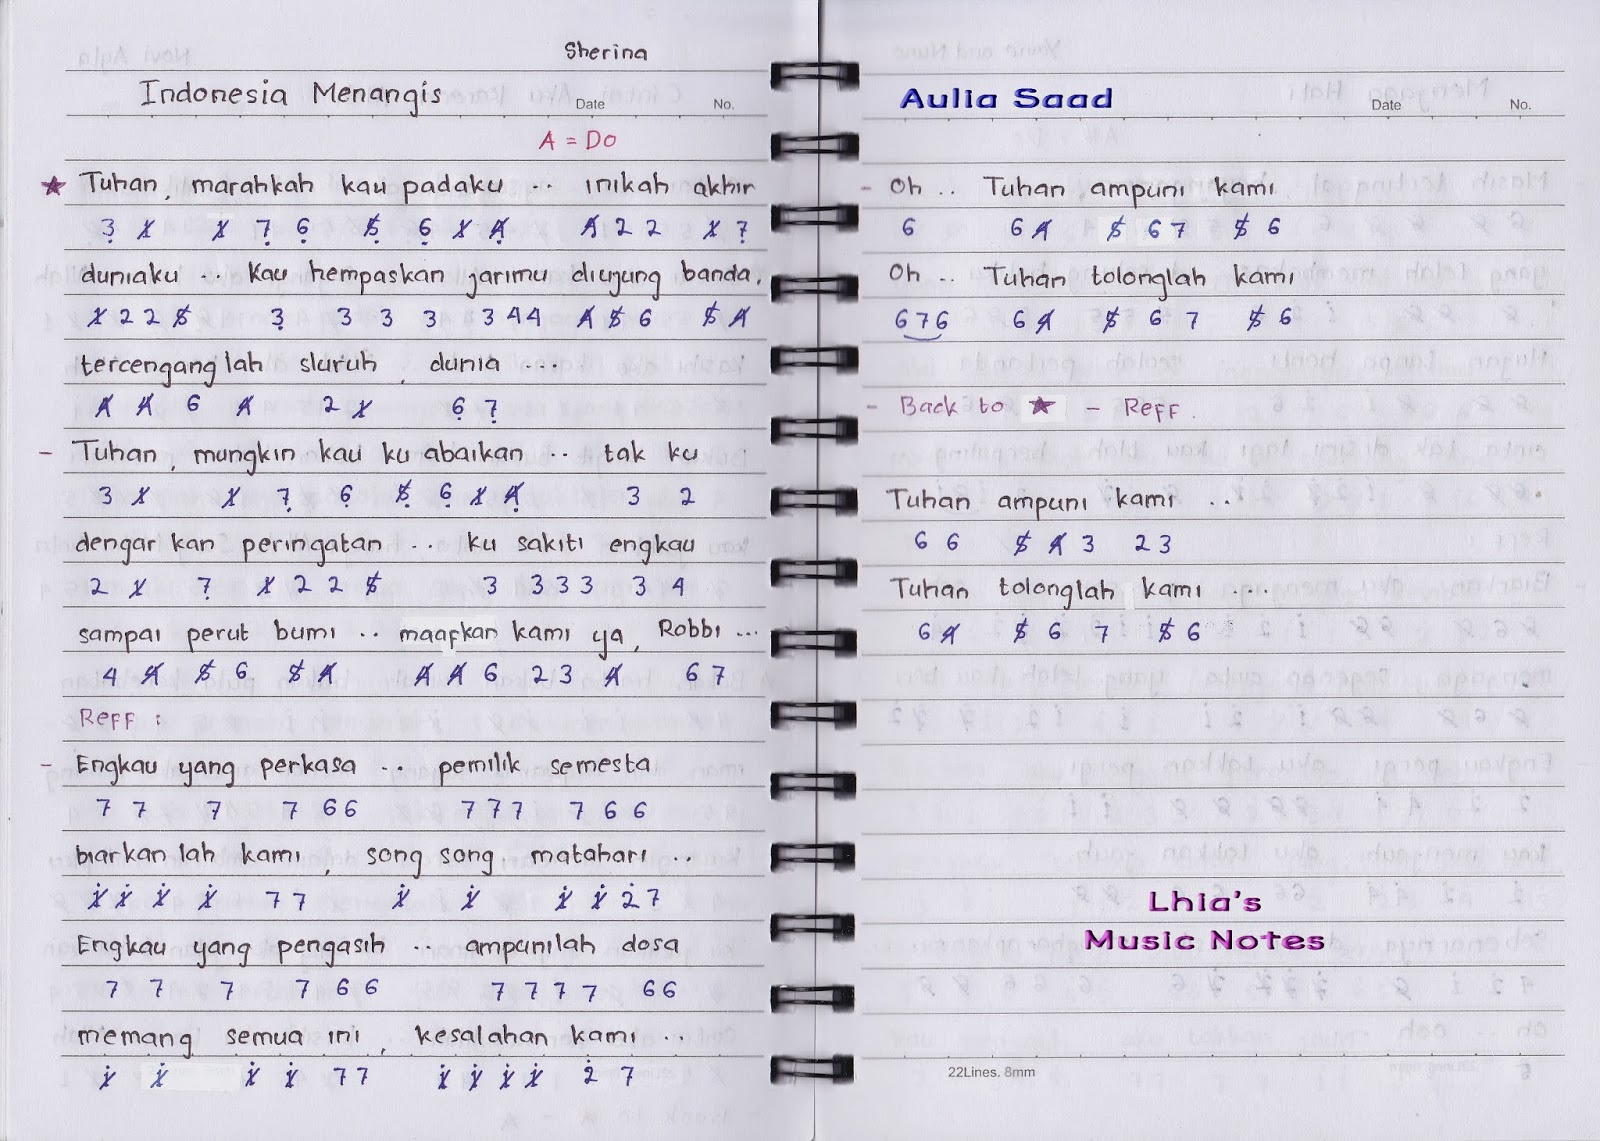 Sherina
Indonesia Menangis Date No.
A = Do
★ Tuhan, marahkah kau padaku .. inikah akhir
3̣ 1̸ 1̸ 7̣ 6̣ 5̸̣ 6̣ 1̸ 4̸̣ 4̸ 2 2 1̸ 7̣
duniaku .. kau hempaskan jarimu diujung banda,
1̸ 2 2 5̸ 3̣ 3 3 3 3 4 4 4̸ 5̸ 6 5̸ 4̸
tercenganglah sluruh, dunia ...
4̸ 4̸ 6 4̸ 2 1̸ 6̣ 7̣
- Tuhan, mungkin kau ku abaikan .. tak ku
3 1̸ 1̸ 7̣ 6̣ 5̸̣ 6̣ 1̸ 4̸̣ 3 2
dengarkan peringatan ... ku sakiti engkau
2 1̸ 7̣ 1̸ 2 2 5̸ 3 3 3 3 3 4
sampai perut bumi .. maafkan kami ya, Robbi ...
4 4̸ 5̸ 6 5̸ 4̸ 4̸ 4̸ 6 2 3 4̸ 6 7
Reff :
- Engkau yang perkasa .. pemilik semesta
7 7 7 7 6 6 7 7 7 7 6 6
biarkanlah kami, song song, matahari ..
1̸̇ 1̸̇ 1̸̇ 1̸̇ 7 7 1̸̇ 1̸̇ 1̸̇ 1̸̇ 2̇ 7
Engkau yang pengasih .. ampunilah dosa
7 7 7 7 6 6 7 7 7 7 6 6
memang semua ini, kesalahan kami ..
1̸̇ 1̸̇ 1̸̇ 1̸̇ 7 7 1̸̇ 1̸̇ 1̸̇ 1̸̇ 2̇ 7
Aulia Saad Date No.
- Oh .. Tuhan ampuni kami
6 6 4̸ 5̸ 6 7 5̸ 6
Oh .. Tuhan tolonglah kami
6 7 6 6 4̸ 5̸ 6 7 5̸ 6
- Back to ★ - Reff.
Tuhan ampuni kami ..
6 6 5̸ 4̸ 3 2 3
Tuhan tolonglah kami ....
6 4̸ 5̸ 6 7 5̸ 6
Lhia's
Music Notes
22Lines. 8mm